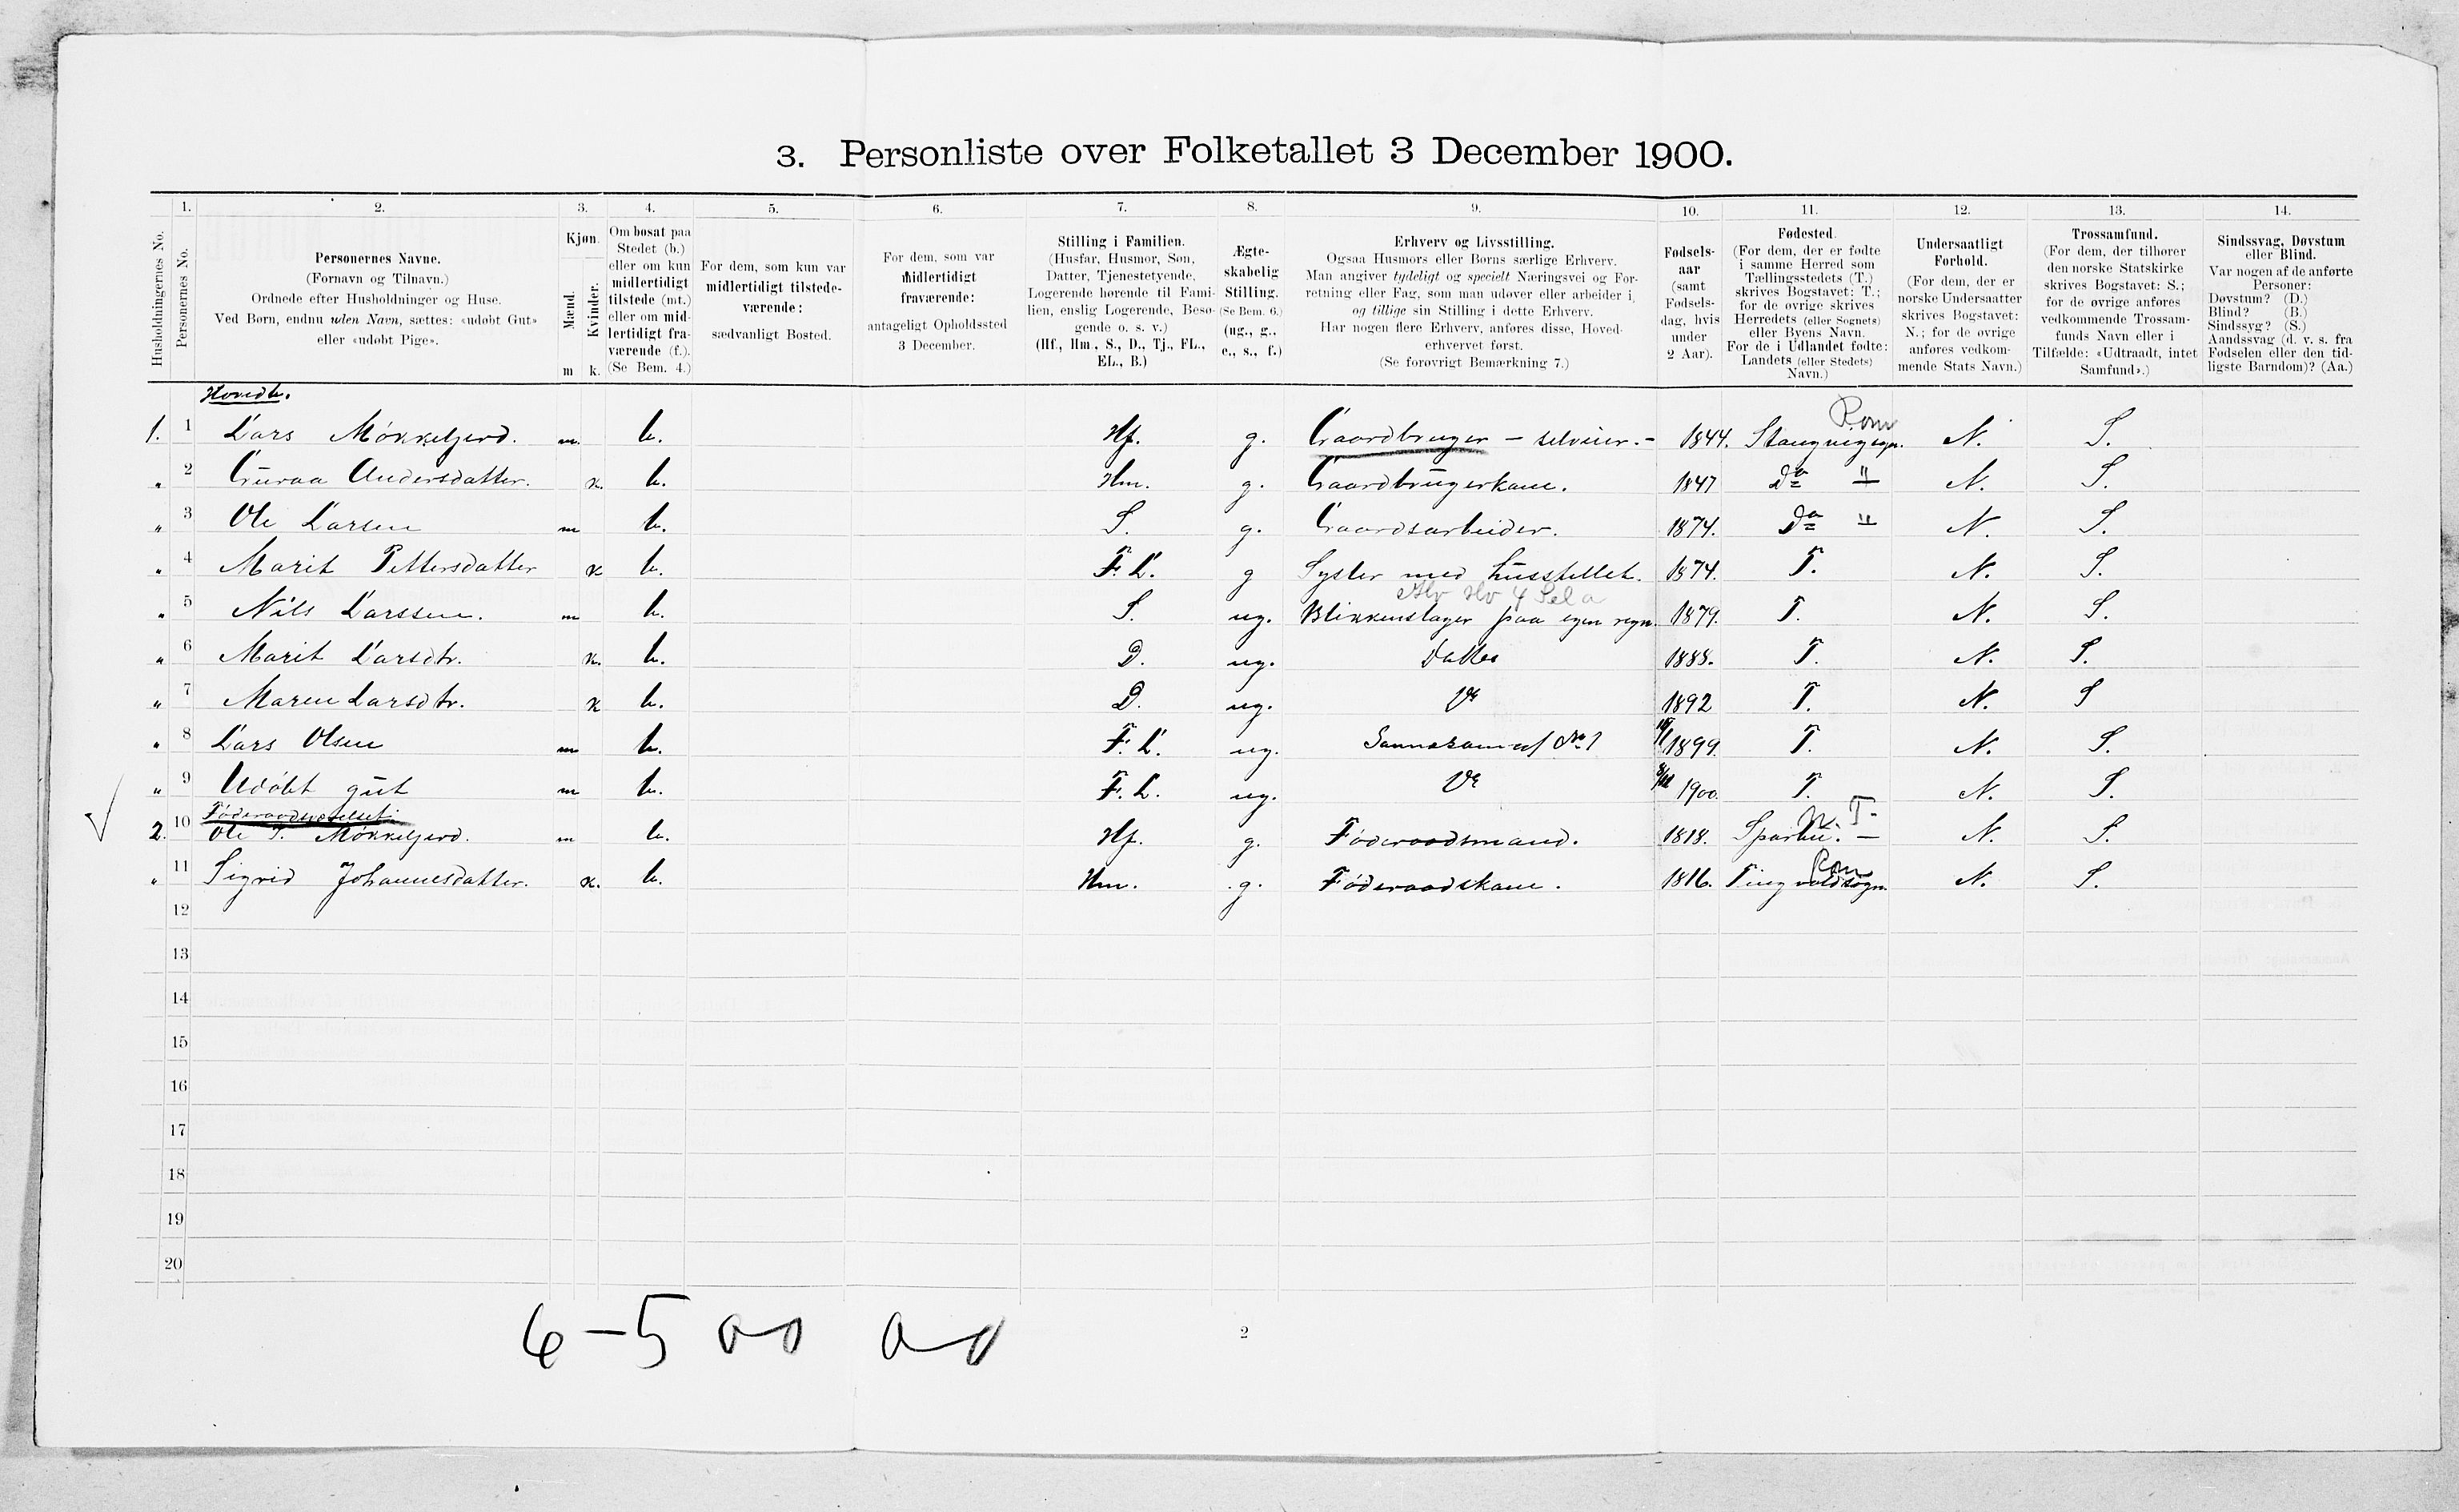 3. Personliste over Folketallet 3 December 1900.
1. 2. 3. 4. 5. 6. 7. 8. 9. 10. 11. 12. 13. 14.
Husholdningernes No.
Personernes No.
Personernes Navne.
(Fornavn og Tilnavn.)
Ordnede efter Husholdninger og Huse.
Ved Børn, endnu uden Navn, sættes: «udøbt Gut»
eller «udøbt Pige».
Kjøn.
Mænd.
Kvinder.
m k.
Om bosat paa
Stedet (b.)
eller om kun
midlertidigt
tilstede (mt.)
eller om mid-
lertidigt fra-
værende (f.).
(Se Bem. 4.)
For dem, som kun var
midlertidigt tilstede-
værende:
sædvanligt Bosted.
For dem, som var
midlertidigt
fraværende:
antageligt Opholdssted
3 December.
Stilling i Familien.
(Husfar, Husmor, Søn,
Datter, Tjenestetyende,
Logerende hørende til Fami-
lien, enslig Logerende, Besø-
gende o. s. v.)
(Hf., Hm., S., D., Tj., FL.,
EL., B.)
Ægte-
skabelig
Stilling.
(Se Bem. 6.)
(ug., g.,
e., s., f.)
Erhverv og Livsstilling.
Ogsaa Husmors eller Børns særlige Erhverv.
Man angiver tydeligt og specielt Næringsvei og For-
retning eller Fag, som man udøver eller arbeider i,
og tillige sin Stilling i dette Erhverv.
Har nogen flere Erhverv, anføres disse, Hoved-
erhvervet først.
(Se forøvrigt Bemærkning 7.)
Fødsels-
aar
(samt
Fødsels-
dag, hvis
under
2 Aar).
Fødested.
(For dem, der er fødte
i samme Herred som
Tællingsstedets (T.)
skrives Bogstavet: T.;
for de øvrige skrives
Herredets (eller Sognets)
eller Byens Navn.
For de i Udlandet fødte:
Landets (eller Stedets)
Navn.)
Undersaatligt
Forhold.
(For dem, der er
norske Undersaatter
skrives Bogstavet:
N.; for de øvrige
anføres vedkom-
mende Stats Navn.)
Trossamfund.
(For dem, der tilhører
den norske Statskirke
skrives Bogstavet: S.;
for de øvrige anføres
vedkommende Trossam-
funds Navn eller i
Tilfælde: «Udtraadt, intet
Samfund».)
Sindssvag, Døvstum
eller Blind.
Var nogen af de anførte
Personer:
Døvstum? (D.)
Blind? (B.)
Sindssyg? (S.)
Aandssvag (d. v. s. fra
Fødselen eller den tid-
ligste Barndom)? (Aa.)
Hovedb.
Rom
1. 1 Lars Mökkelgjerd. m. b. Hf. g. Gaardbruger – selveier. – 1844. Stangvigsogn. N. S.
" 2 Guraa Andersdatter. k. b. Hm. g. Gaardbrugerkone. 1847 Do " N. S.
" 3 Ole Larsen m b. S. g. Gaardsarbeider. 1874. Do " N. S.
" 4 Marit Pettersdatter k b. F. L. g Sysler med husstellet. 1874. T. N. S.
" 5 Nils Larssen. m b. S. ug. Blikkenslager paa egen regn. 1879. T. N. S.
" 6 Marit Larsdtr. k. b. D. ug. Datter 1888. T. N. S.
" 7 Maren Larsdtr. k b. D. ug. Do 1892 T. N. S
" 8 Lars Olsen m b. F. L. ug. 1899. T. N. S.
" 9 Udöbt gut m b. F. L. ug. Do 1900. T. N. S.
Föderaadsfolket:
N. T.
2. 10 Ole T. Mökkelgjerd. m b. Hf. g. Föderaadsmand. 1818. Sparbu. – N. S.
Rom
" 11 Sigrid Johannesdatter. k. b. Hm. g. Föderaadskone. 1816. Tingvoldsogn. N. S.
12
13
14
15
16
17
18
19
20
6–5
2